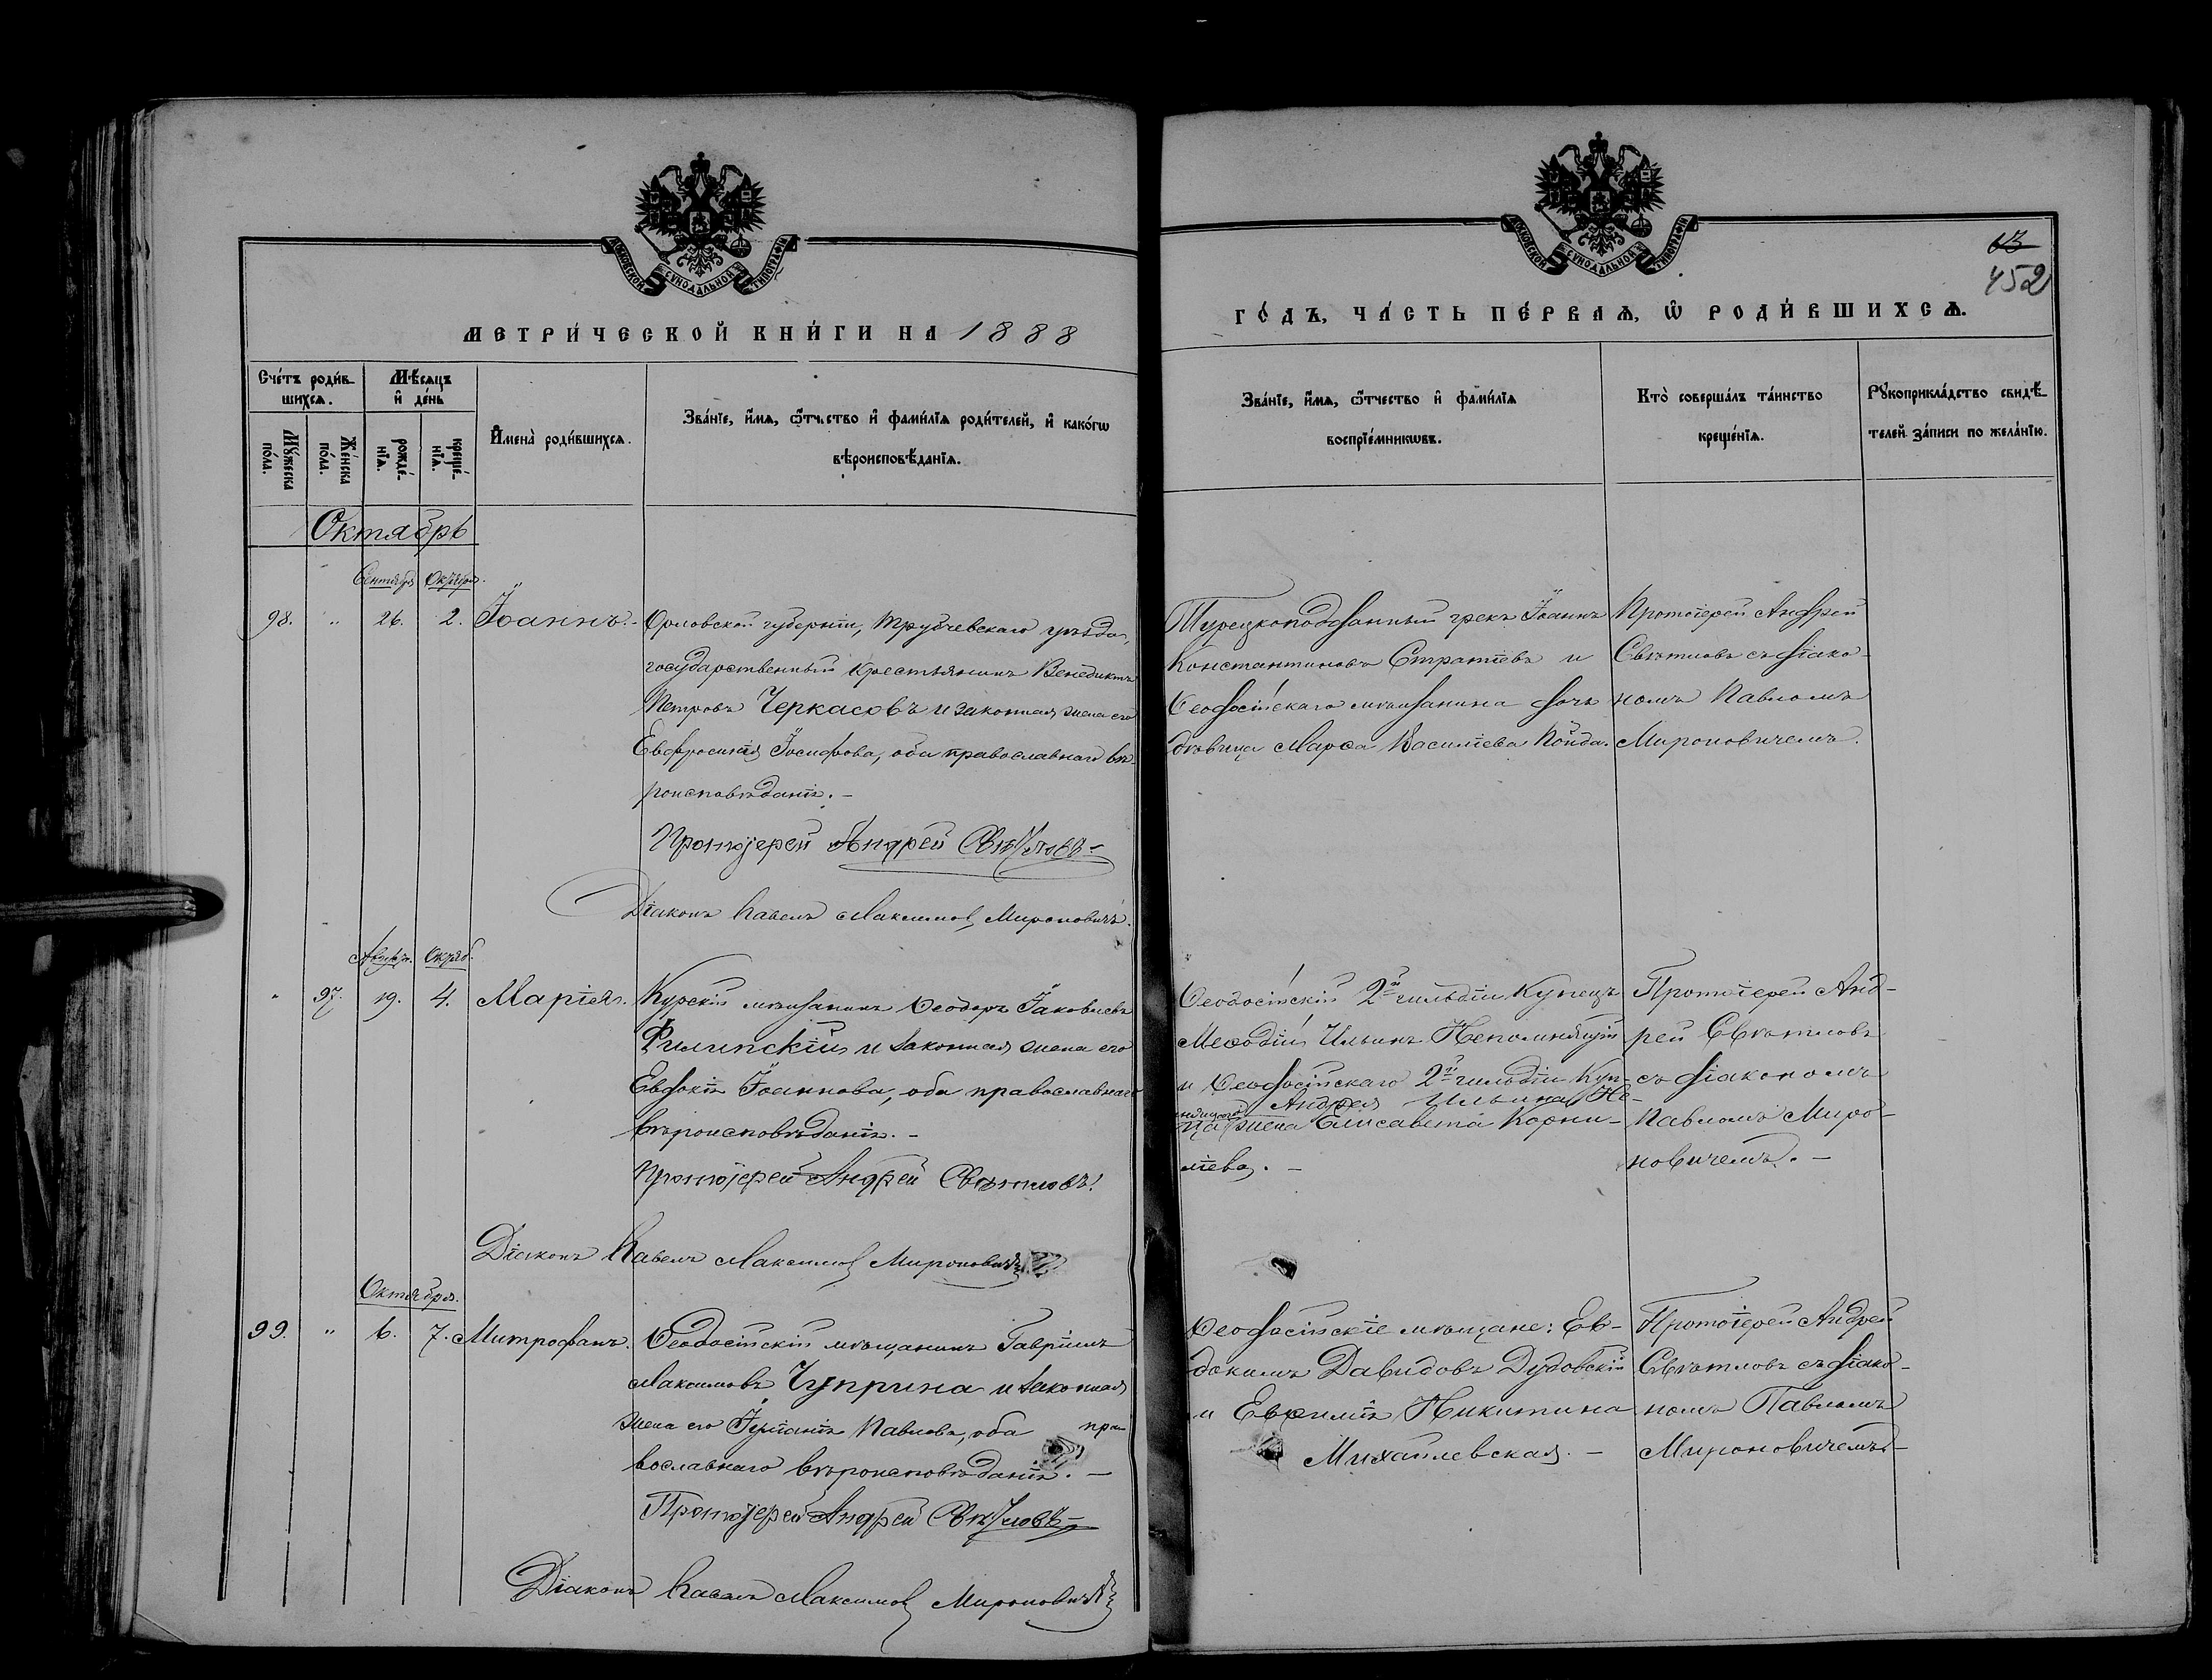 МОСКОВСКОЙ СѴНОДАЛЬНОЙ ТИПОГРАФІИ
МЕТРИ́ЧЕСКОЙ КНИ́ГИ НА 1888
Сче́тъ роди́в-
шихсѧ.
Мѣ́сѧцъ
и҆ де́нь
Мꙋ́жеска
по́ла.
Же́нска
по́ла.
рожде́-
нїѧ.
креще́-
нїѧ.
И҆мена̀ роди́вшихсѧ.
Зва́нїе, и҆́мѧ, ѻ҆́тчество и҆ фами́лїѧ роди́телей, и҆ како́гѡ
вѣроисповѣ́данїѧ.
Октябрь
Сентября Октября.
98. " 26. 2. Іоаннъ.
Орловской губерніи, Трубчевскаго уѣзда,
государственный крестьянинъ Венедиктъ
Петровъ Черкасовъ и законная жена его
Евфросинія Іосифова, оба православнаго вѣ-
роисповѣданія. –
Протоіерей Андрей Свѣтловъ
Діаконъ Павелъ Максимов Мироновичъ.
Август. Октяб.
" 97. 19. 4. Марія.
Курскій мѣщанинъ Ѳеодоръ Іаковлевъ
Филипскій и законная жена его
Евдокія Іоаннова, оба православнаго
вѣроисповѣданія. –
Протоіерей Андрей Свѣтловъ.
Діаконъ Павелъ Максимов Мироновичъ
Октября.
99. " 6. 7. Митрофанъ.
Ѳеодосійскій мѣщанинъ Гавріилъ
Максимовъ Чуприна и законная
жена его Іуліанія Павлова, оба пра-
вославнаго вѣроисповѣданія. –
Протоіерей Андрей Свѣтловъ
Діаконъ Павелъ Максимов Мироновичъ
МОСКОВСКОЙ СѴНОДАЛЬНОЙ ТИПОГРАФІИ
13
452
ГО́ДЪ, ЧА́СТЬ ПЕ́РВАѦ, Ѡ҆ РОДИ́ВШИХСѦ.
Зва́нїе, и҆́мѧ, ѻ҆́тчество и҆ фами́лїѧ
воспрїе́мникѡвъ.
Кто̀ соверша́лъ та́инство
креще́нїѧ.
Рꙋкоприкла́дство свидѣ́-
телей за́писи по жела́нїю.
Турецкоподданный грекъ Іоаннъ
Константиновъ Стратіевъ и
Ѳеодосійскаго мѣщанина дочь
дѣвица Марѳа Василіева Койда.
Протоіерей Андрей
Свѣтловъ съ діако-
номъ Павломъ
Мироновичемъ.
Ѳеодосійскій 2й гильдіи купецъ
Меѳодій Ильинъ Непомнящій
и Ѳеодосійскаго 2й гильдіи куп-
Андрея Ильина Не-
мнящаго
ца жена Елисавета Корни-
ліева. –
Протоіерей Анд-
рей Свѣтловъ
съ діакономъ
Павломъ Миро-
новичемъ. –
Ѳеодосійскіе мѣщане: Ев-
докимъ Давидовъ Дудовскій
и Евѳимія Никитина
Михайлевская. –
Протоіерей Андрей
Свѣтловъ съ діако-
номъ Павломъ
Мироновичемъ –